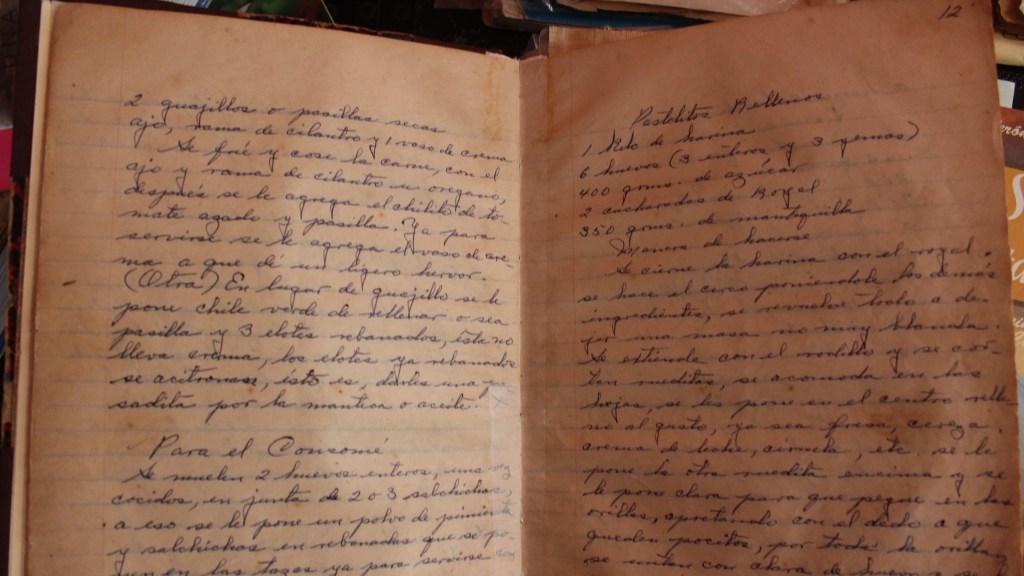 2 guajillos o pasillas secas
ajo, rama de cilantro y 1 vaso de crema
Se fríe y cose la carne, con el
ajo y rama de cilantro u oregano,
después se le agrega el chilito de to-
mate asado y pasilla. Ya para
servirse se le agrega el vaso de cre-
ma a que dé un ligero hervor.
(Otra) En lugar de guajillo se le
pone chile verde de rellenar o sea
pasilla y 3 elotes rebanados, ésta no
lleva crema, los elotes ya rebanados
se acitronan, ésto es, darles una pa
sadita por la manteca o aceite.
Para el Consomé
Se muelen 2 huevos enteros, una vez
cocidos, en junta de 2 o 3 salchichas,
a eso se le pone un polvo de pimienta
y salchichas en rebanadas que se po-
nen en las tazas ya para servirse con
12
Pastelitos Rellenos
1 Kilo de harina
6 huevos (3 enteros y 3 yemas)
400 grms. de azúcar
2 cucharadas de Royal
350 grms. de mantequilla
Manera de hacerse
Se cierne la harina con el royal,
se hace el cerco poniendole los demás
ingredientes, se revuelve todo a de-
jar una masa no muy blanda.
Se estiende con el rodillo y se cor-
tan rueditas, se acomoda en las
hojas, se les pone en el centro relle
no al gusto, ya sea fresa, cereza,
crema de leche, ciruela, etc. se le
pone la otra ruedita encima y se
le pone clara para que pegue en las
orillas, apretando con el dedo a que
queden pocitos, por toda la orilla
se untan con clara de huevo